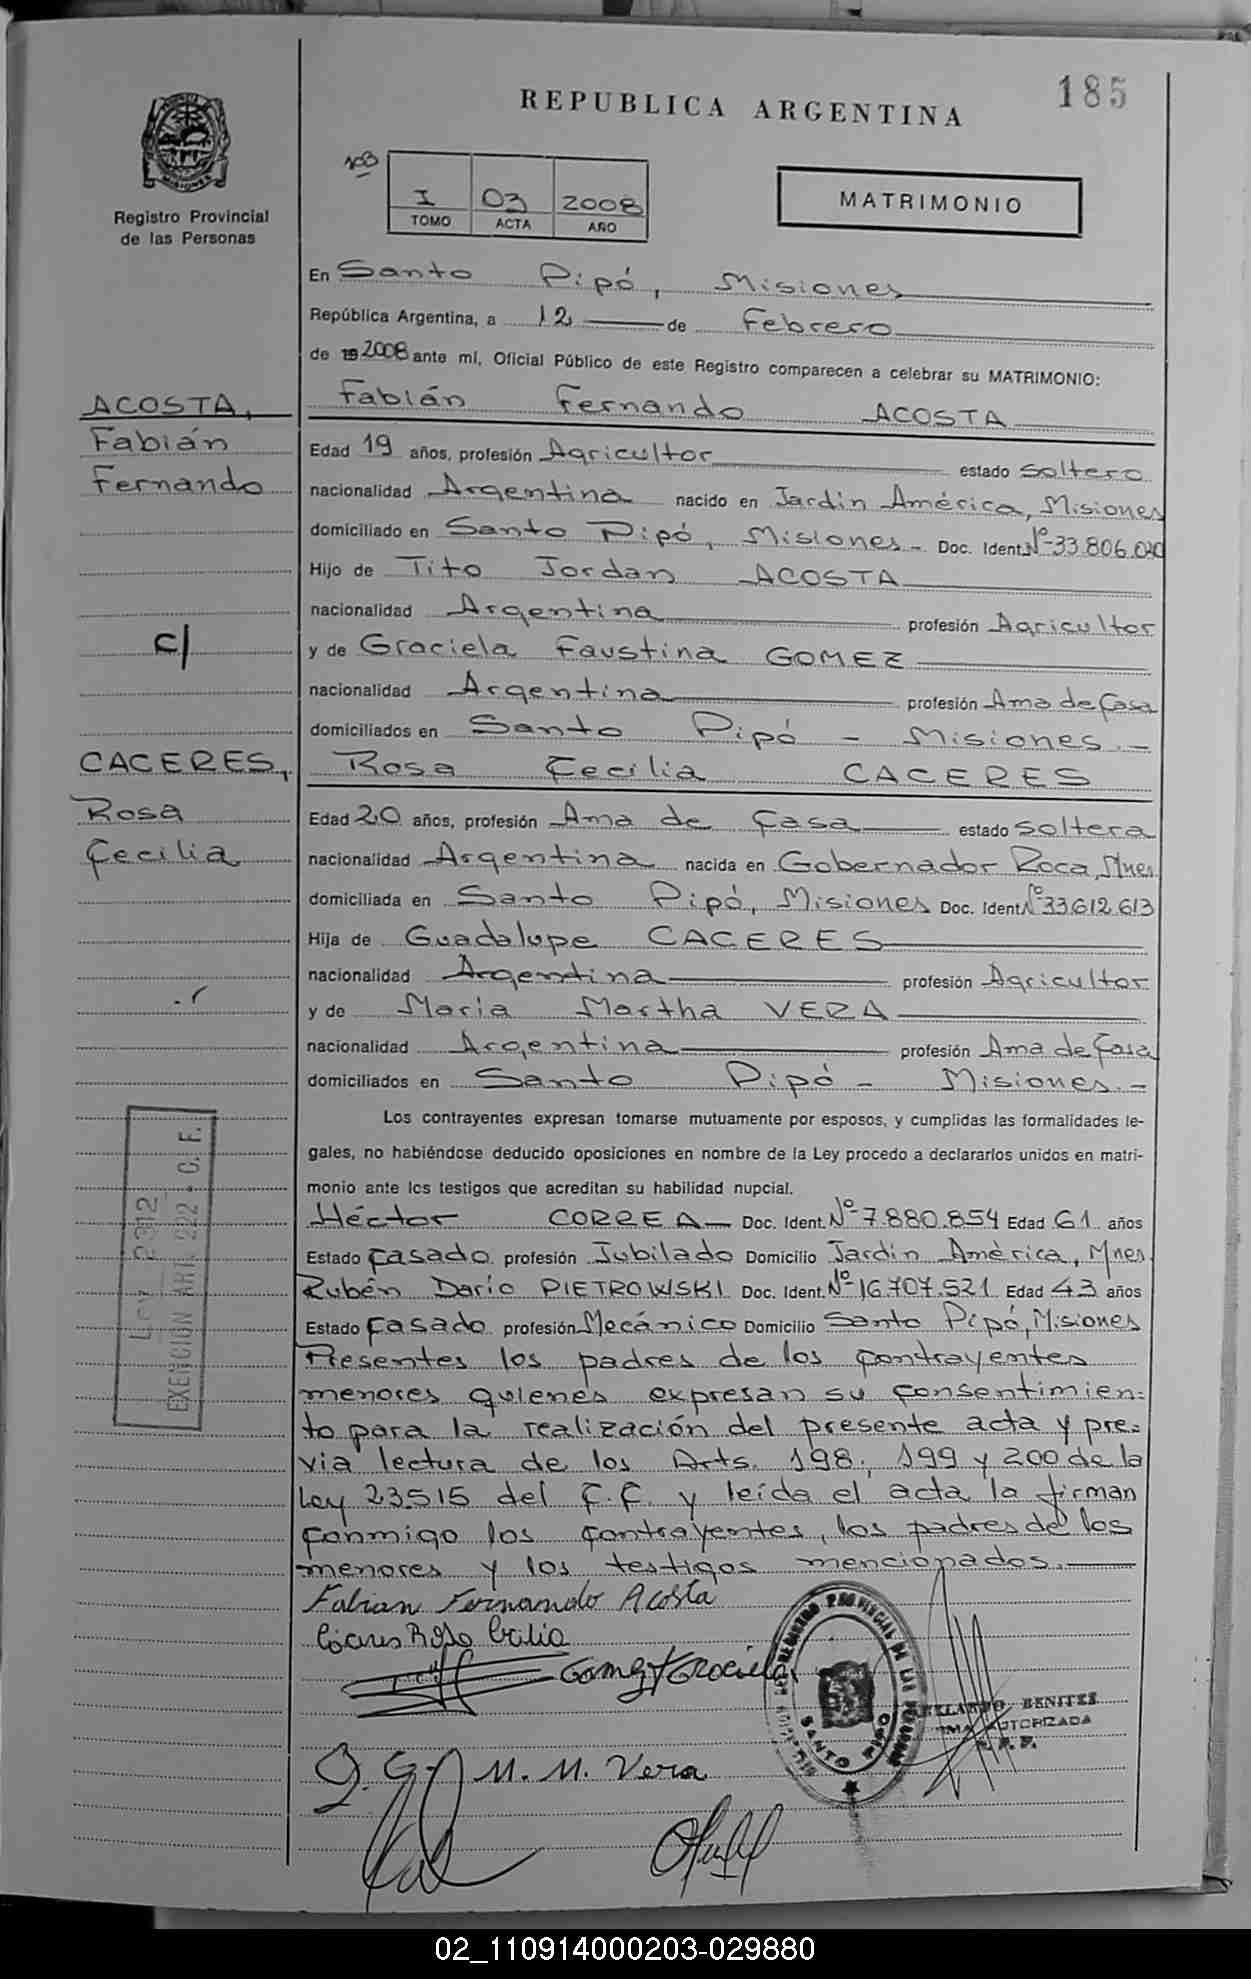 185
REPUBLICA ARGENTINA
MISIONES
Registro Provincial
de las Personas
103
I 03 2008
TOMO ACTA AÑO
MATRIMONIO
En Santo Pipó, Misiones
República Argentina, a 12 de Febrero
de 19 2008 ante mí, Oficial Público de este Registro comparecen a celebrar su MATRIMONIO:
ACOSTA,
Fabián
Fernando
c/
CACERES,
Rosa
Cecilia
Fabián Fernando ACOSTA
Edad 19 años, profesión Agricultor estado soltero
nacionalidad Argentina nacido en Jardín América, Misiones
domiciliado en Santo Pipó, Misiones - Doc. Ident. Nº 33.806.020
Hijo de Tito Jordan ACOSTA
nacionalidad Argentina profesión Agricultor
y de Graciela Faustina GOMEZ
nacionalidad Argentina profesión Ama de Casa
domiciliados en Santo Pipó - Misiones.-
Rosa Cecilia CACERES
Edad 20 años, profesión Ama de Casa estado soltera
nacionalidad Argentina nacida en Gobernador Roca, Mnes
domiciliada en Santo Pipó, Misiones Doc. Ident. Nº 33.612.613
Hija de Guadalupe CACERES
nacionalidad Argentina profesión Agricultor
y de Maria Martha VERA
nacionalidad Argentina profesión Ama de Casa
domiciliados en Santo Pipó - Misiones.-
Los contrayentes expresan tomarse mutuamente por esposos, y cumplidas las formalidades le-
gales, no habiéndose deducido oposiciones en nombre de la Ley procedo a declararlos unidos en matri-
monio ante los testigos que acreditan su habilidad nupcial.
Héctor CORREA - Doc. Ident. Nº 7.880.854 Edad 61 años
Estado Casado profesión Jubilado Domicilio Jardín América, Mnes.
Rubén Darío PIETROWSKI Doc. Ident. Nº 16.707.521 Edad 43 años
Estado Casado profesión Mecánico Domicilio Santo Pipó, Misiones
Presentes los padres de los contrayentes
menores quienes expresan su consentimien-
to para la realización del presente acta y pre-
via lectura de los Arts. 198, 199 y 200 de la
Ley 23.515 del C.C. y leída el acta la firman
conmigo los contrayentes, los padres de los
menores y los testigos mencionados.
LEY 2312
EXENCION ART. 222 - C. F.
Fabian Fernando Acosta
Cáceres Rosa Cecilia
Gomez Graciela
J. G. M. M. Vera
REGISTRO PROVINCIAL DE LAS PERSONAS
SANTO PIPO
BENITEZ
AUTORIZADA
R. P. P.
02_110914000203-029880